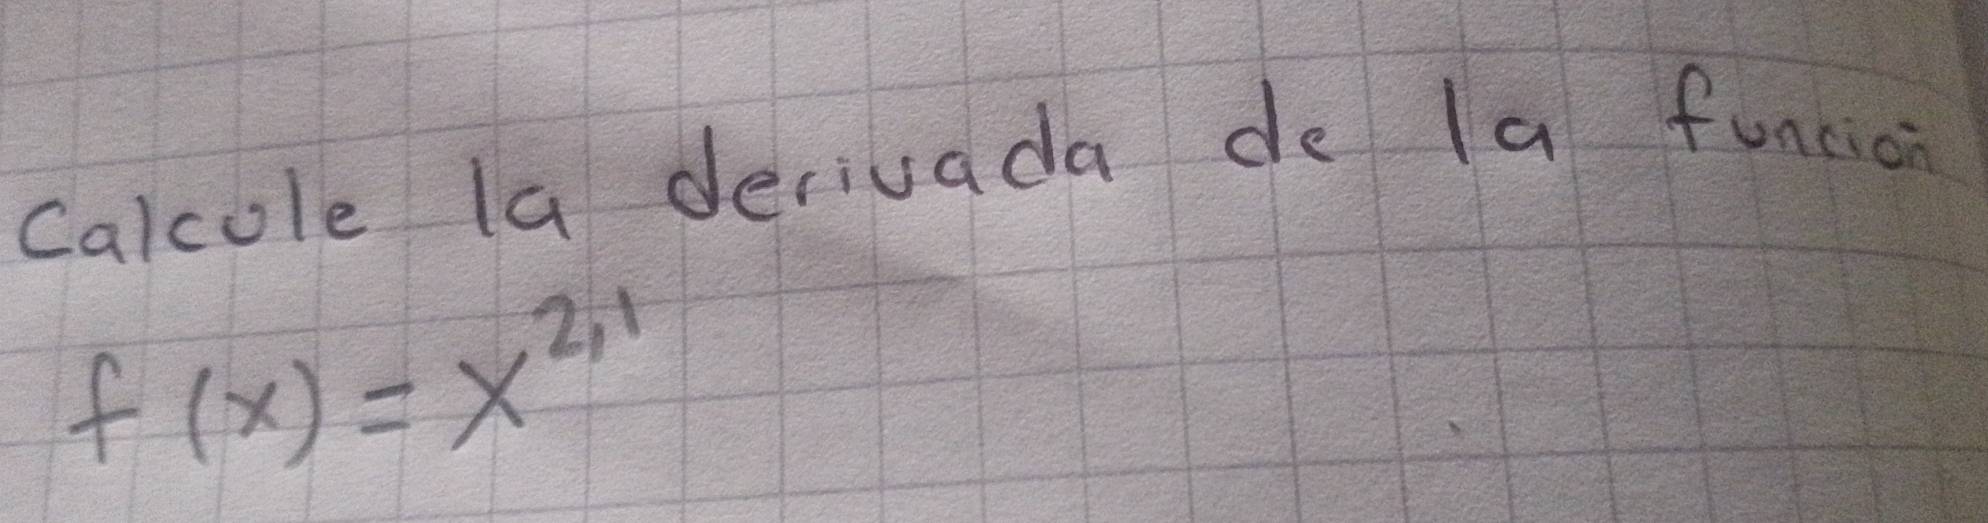 Calcule la derivada de la función
f(x) = x^2,1